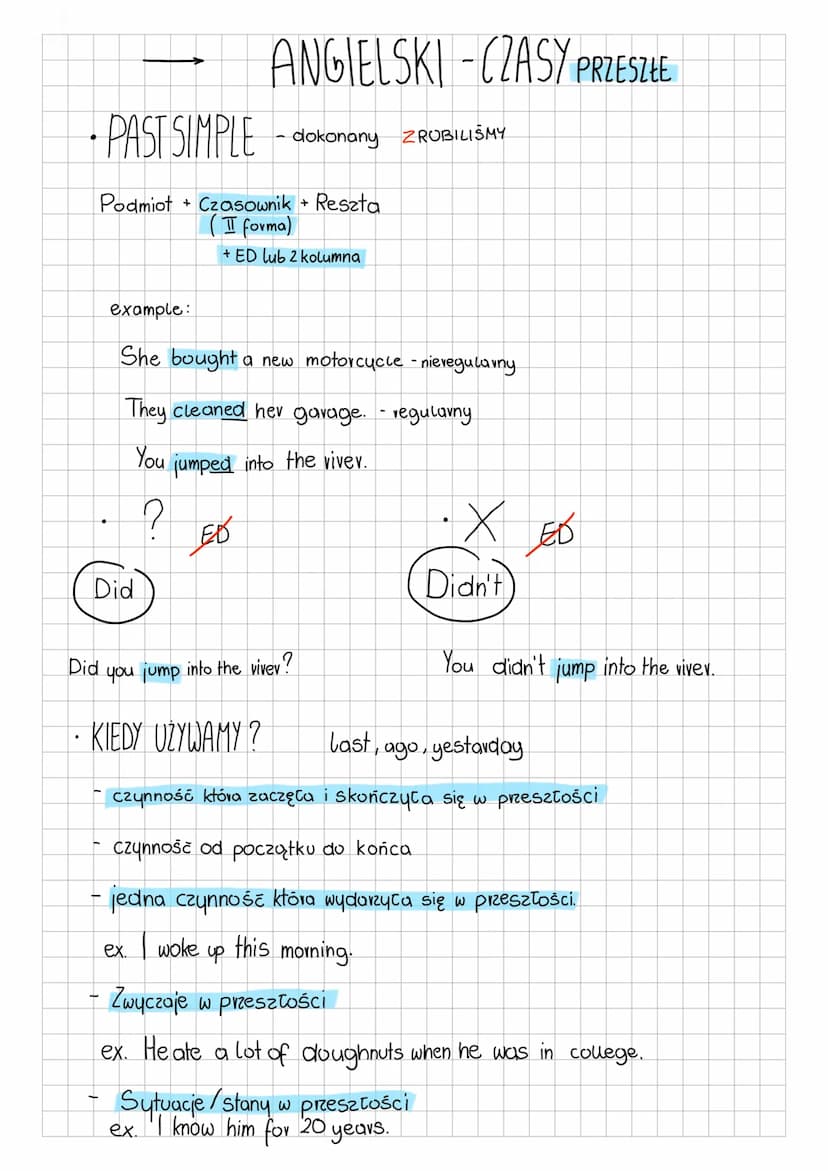 → ANGIELSKI - CZASY PRZESZŁE
• PAST SIMPLE - dokonany ZROBILIŚMY
Podmiot + Czasownik + Reszta
(II forma)
+ ED lub 2 kolumna
example:
She bought a new motorcycle - nieregularny
They cleaned her garage. - regularny
You jumped into the river.
• ? ED • X ED
Did Didn't
Did you jump into the river? You didn't jump into the river.
• KIEDY UŻYWAMY? last, ago, yestarday
- czynność która zaczęła i skończyła się w przeszłości
- czynność od początku do końca
- jedna czynność która wydarzyła się w przeszłości.
ex. I woke up this morning.
- Zwyczaje w przeszłości
ex. He ate a lot of doughnuts when he was in college.
- Sytuacje/stany w przeszłości
ex. I know him for 20 years.